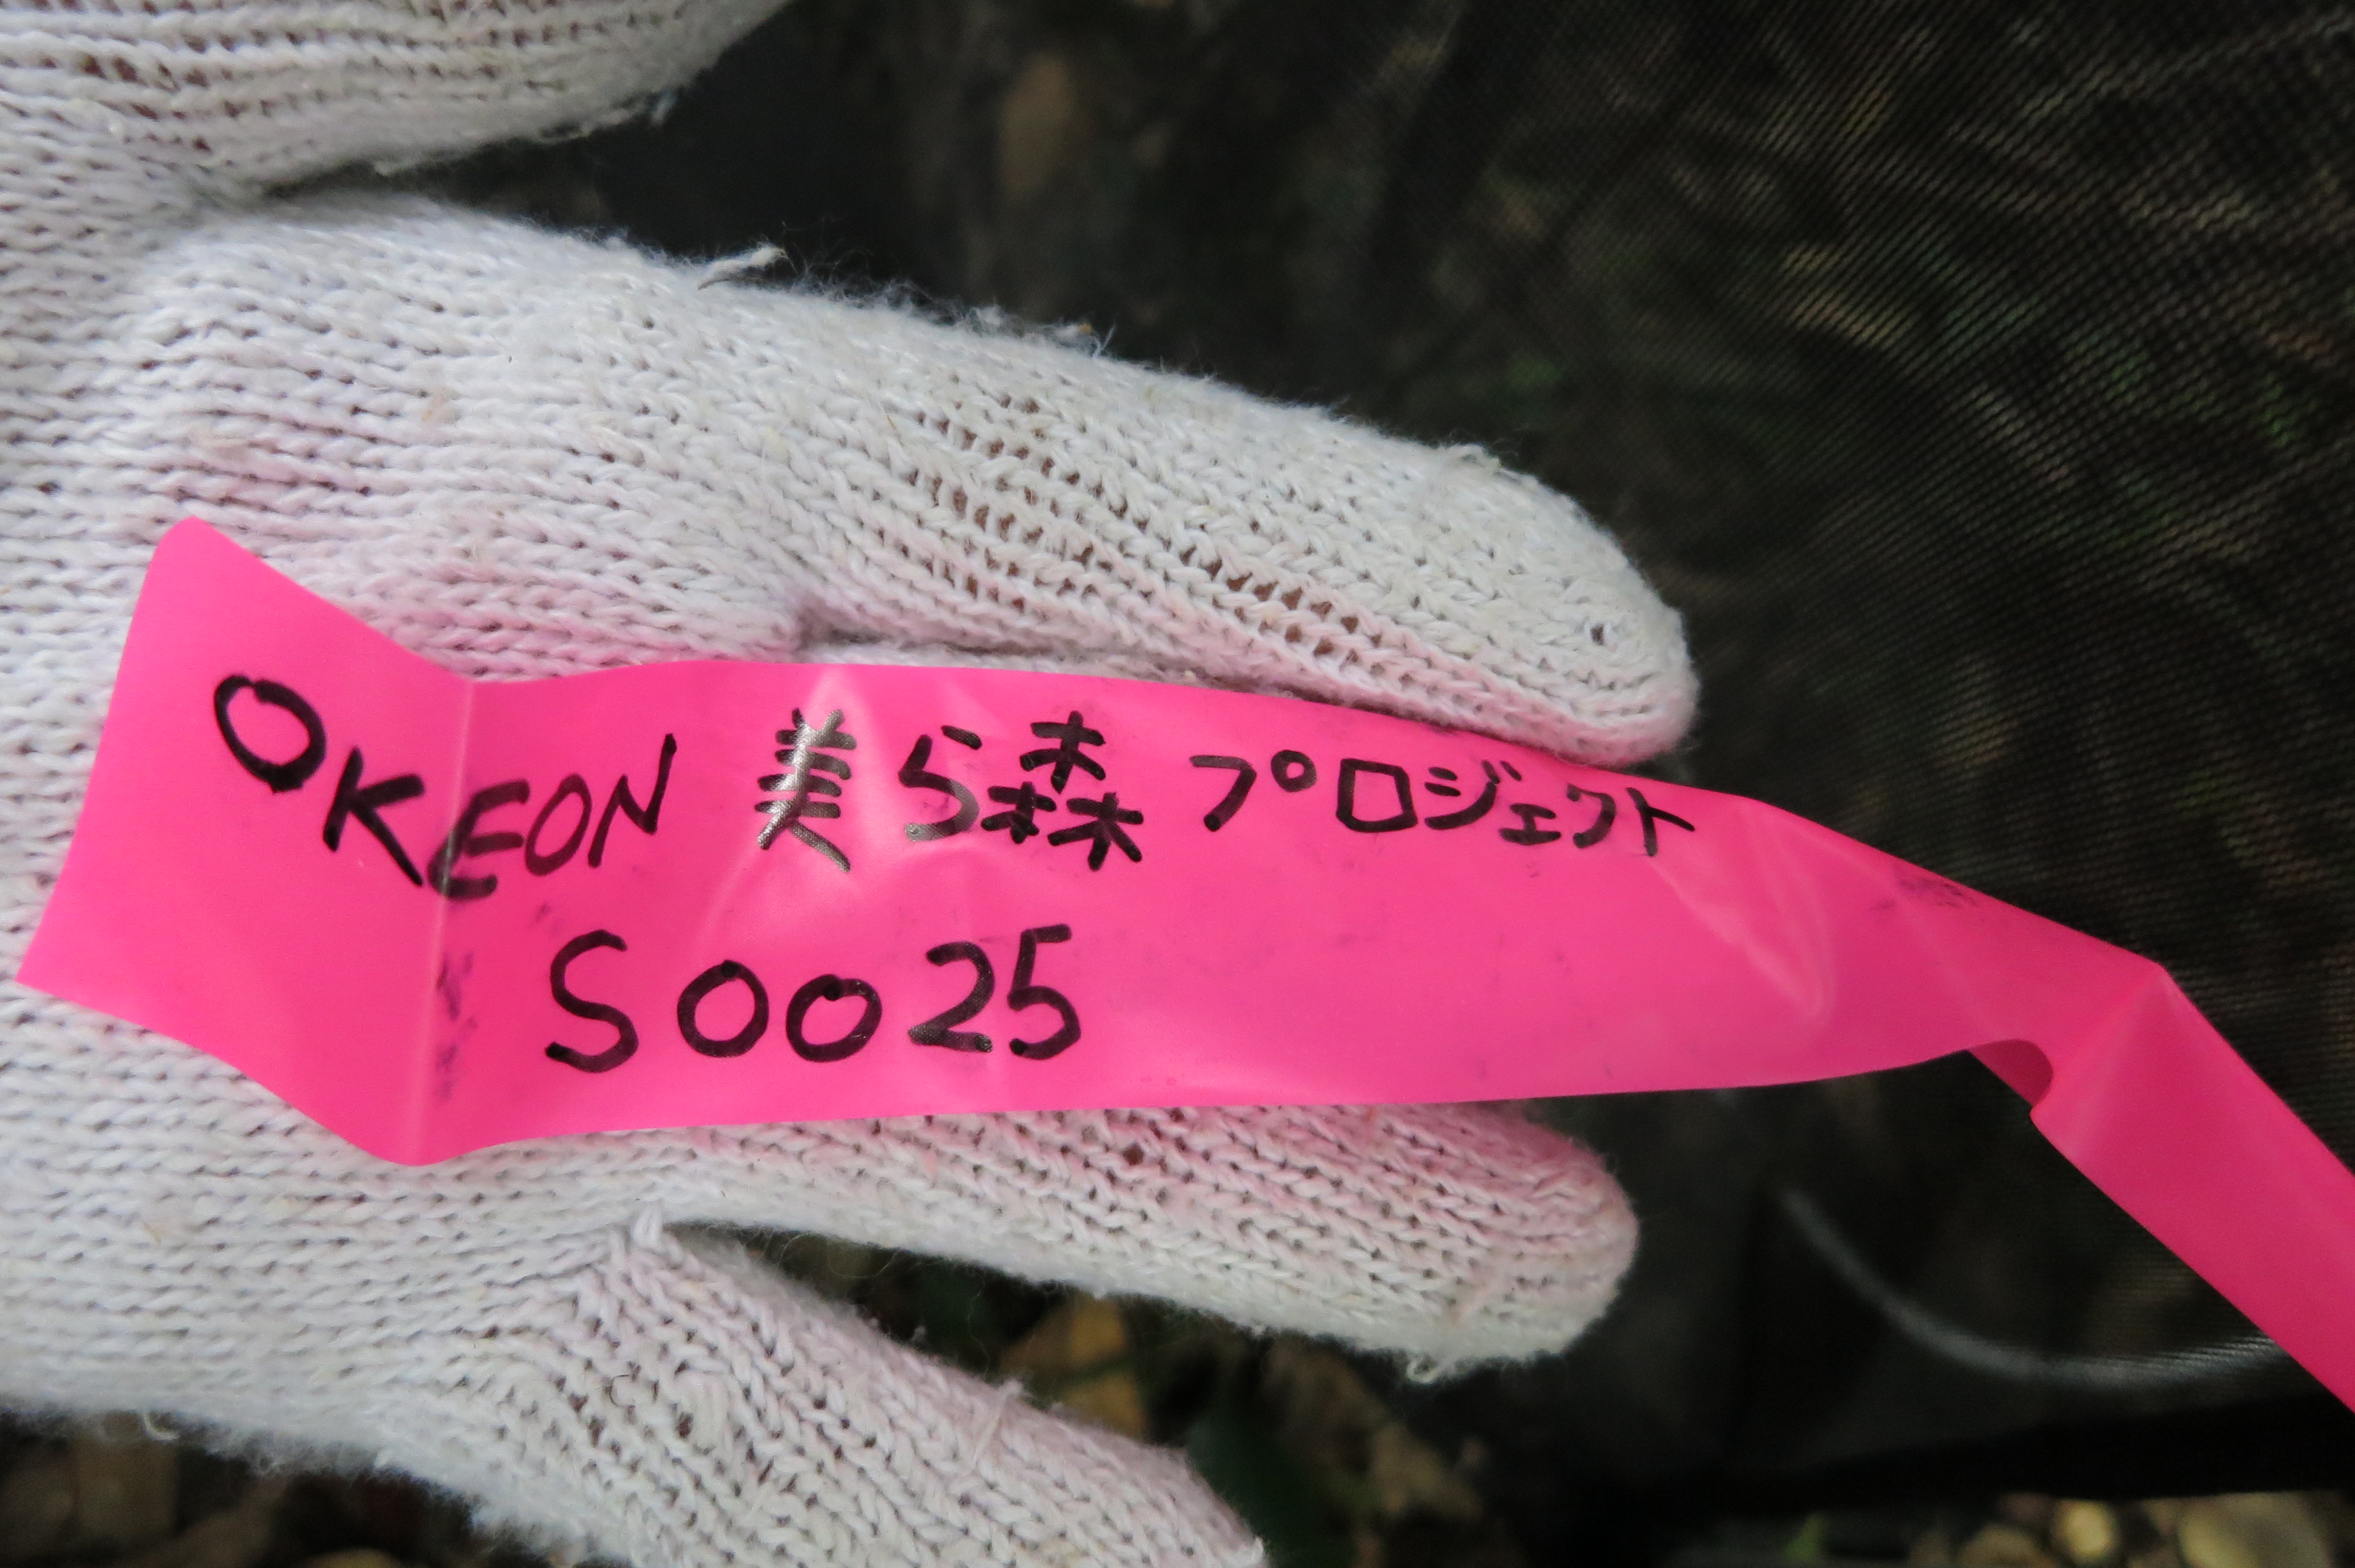 OKEON 美ら森 プロジェクト
S0025